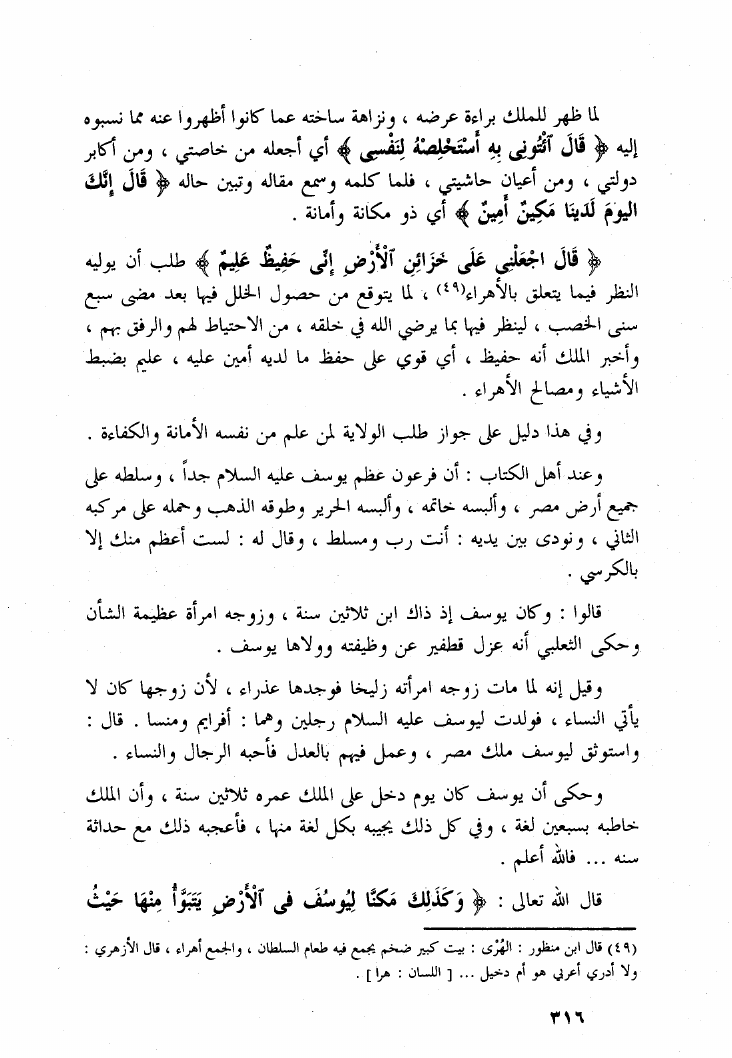 لما ظهر للملك براءة عرضه ، ونزاهة ساخته عما كانوا أظهروا عنه مما نسبوه
إليه ﴿ قَالَ ٱئْتُونِى بِهِ أَسْتَخْلِصْهُ لِنَفْسِى ﴾ أي أجعله من خاصتي ، ومن أكابر
دولتي ، ومن أعيان حاشيتي ، فلما كلمه وسمع مقاله وتبين حاله ﴿ قَالَ إِنَّكَ
اليومَ لَدَينَا مَكِينٌ أَمِينٌ ﴾ أي ذو مكانة وأمانة .
﴿ قَالَ اجْعَلْنِى عَلَى خَزَائِنِ ٱلْأَرْضِ إِنِّى حَفِيظٌ عَلِيمٌ ﴾ طلب أن يوليه
النظر فيما يتعلق بالأهراء(٤٩) ، لما يتوقع من حصول الخلل فيها بعد مضى سبع
سنى الخصب ، لينظر فيها بما يرضي الله في خلقه ، من الاحتياط لهم والرفق بهم ،
وأخبر الملك أنه حفيظ ، أي قوي على حفظ ما لديه أمين عليه ، عليم بضبط
الأشياء ومصالح الأهراء .
وفي هذا دليل على جواز طلب الولاية لمن علم من نفسه الأمانة والكفاءة .
وعند أهل الكتاب : أن فرعون عظم يوسف عليه السلام جداً ، وسلطه على
جميع أرض مصر ، وألبسه خاتمه ، وألبسه الحرير وطوقه الذهب وحمله على مركبه
الثاني ، ونودى بين يديه : أنت رب ومسلط ، وقال له : لست أعظم منك إلا
بالكرسي .
قالوا : وكان يوسف إذ ذاك ابن ثلاثين سنة ، وزوجه امرأة عظيمة الشأن
وحكى الثعلبي أنه عزل قطفير عن وظيفته وولاها يوسف .
وقيل إنه لما مات زوجه امرأته زليخا فوجدها عذراء ، لأن زوجها كان لا
يأتي النساء ، فولدت ليوسف عليه السلام رجلين وهما : أفرايم ومنسا . قال :
واستوثق ليوسف ملك مصر ، وعمل فيهم بالعدل فأحبه الرجال والنساء .
وحكى أن يوسف كان يوم دخل على الملك عمره ثلاثين سنة ، وأن الملك
خاطبه بسبعين لغة ، وفي كل ذلك يجيبه بكل لغة منها ، فأعجبه ذلك مع حداثة
سنه ... فالله أعلم .
قال الله تعالى : ﴿ وَكَذَلِكَ مَكنَّا لِيُوسُفَ فى ٱلْأَرْضِ يَتَبَوَّأُ مِنْهَا حَيْثُ
(٤٩) قال ابن منظور : الهُرْى : بيت كبير ضخم يجمع فيه طعام السلطان ، والجمع أهراء ، قال الأزهري :
ولا أدري أعربي هو أم دخيل ... [ اللسان : هرا ] .
٣١٦